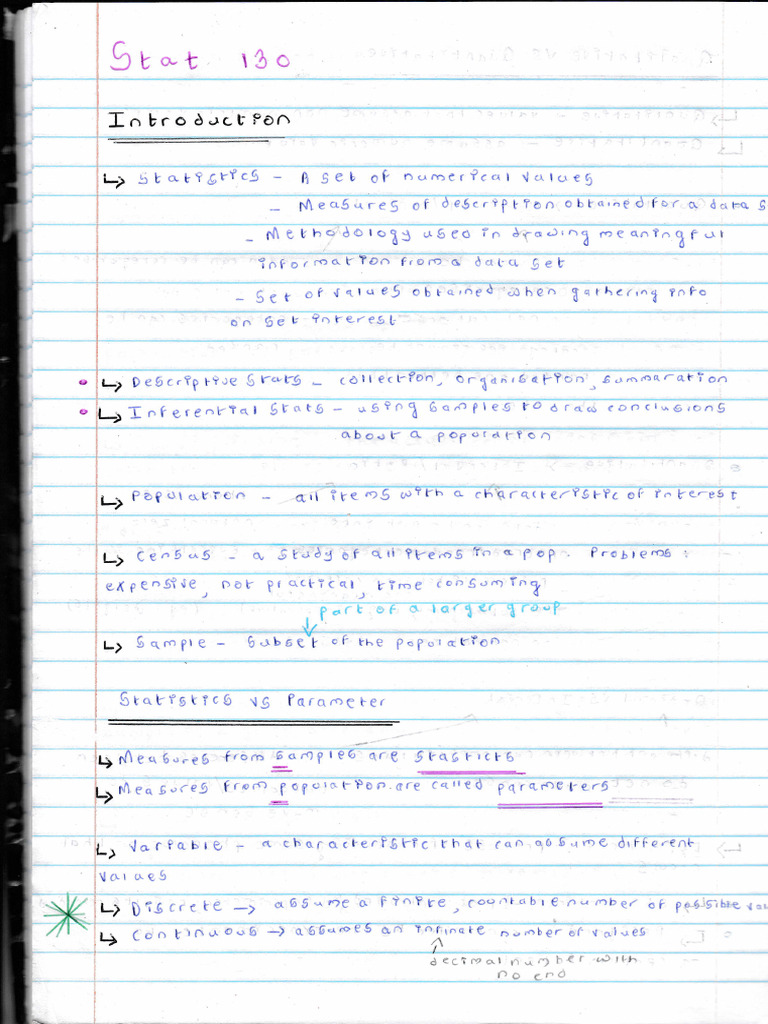 Stat 130
Introduction
↳ Statistics - A set of numerical values
- Measures of description obtained for a data s
- Methodology used in drawing meaningful
information from a data set
- Set of values obtained when gathering info
on set interest
• ↳ Descriptive stats - collection, organisation, summaration
• ↳ Inferential stats - using samples to draw conclusions
about a poporation
↳ Population - all items with a characteristic of interest
↳ Census - a study of all items in a pop. Problems:
expensive, not practical, time consuming
part of a larger group
↳ Sample - subset of the poporation
Statistics vs Parameter
↳ Measures from samples are stasticts
↳ Measures from poporation are called parameters
↳ Variable - a characteristic that can assume different
values
↳ Discrete → assume a finite, countable number of possible val
↳ Continuous → assumes an infinate number of values
decimal number with
no end